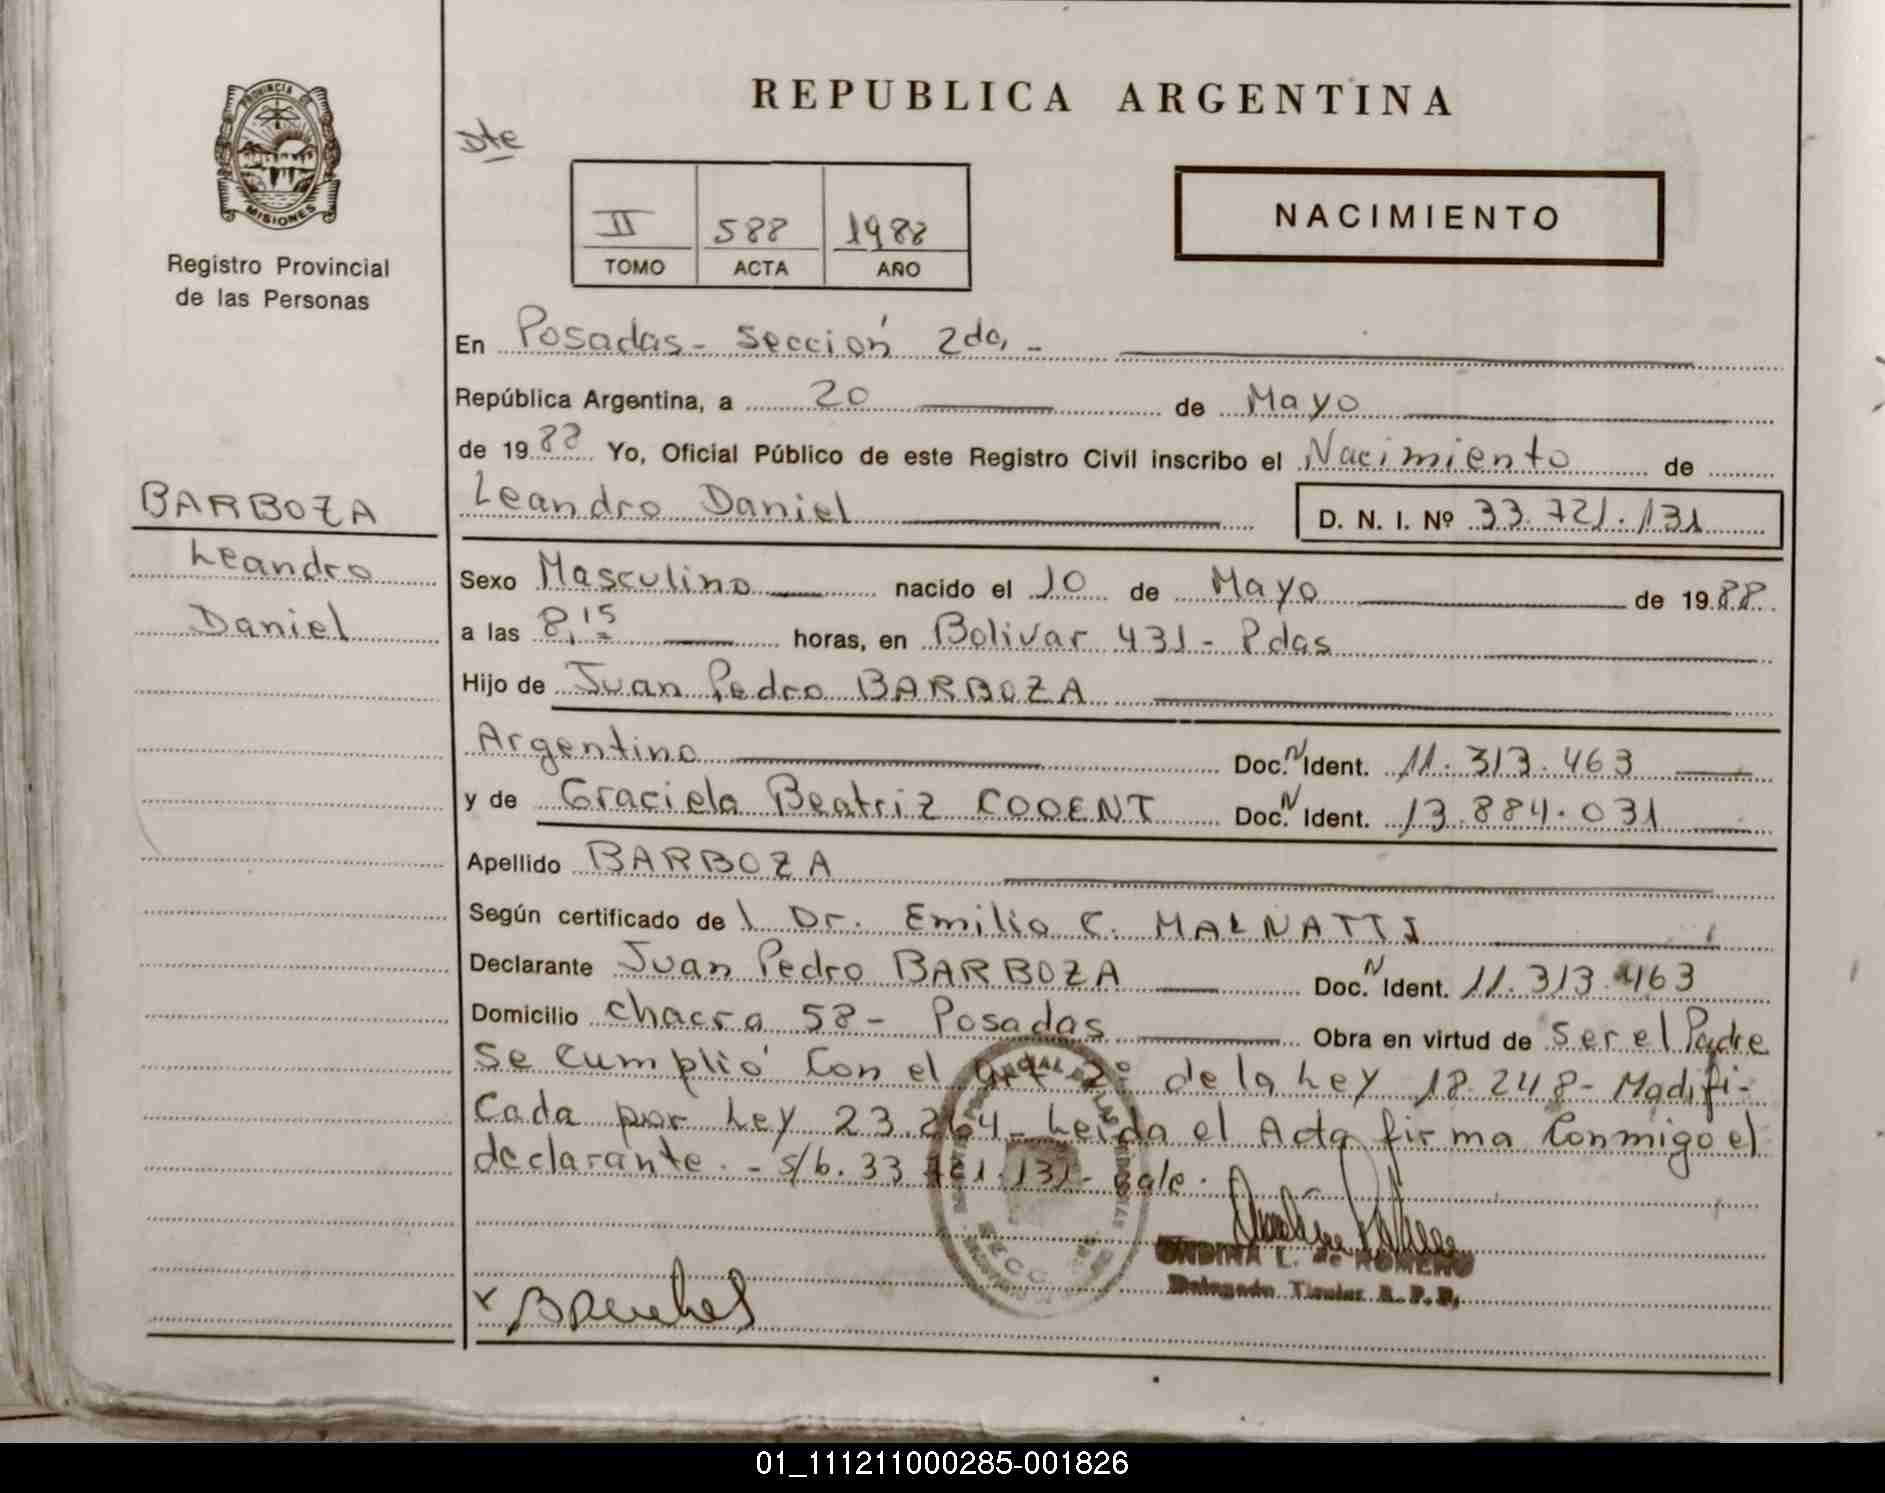 PROVINCIA DE
MISIONES
Registro Provincial
de las Personas
REPUBLICA ARGENTINA
Dte
II 588 1988
TOMO ACTA AÑO
NACIMIENTO
En Posadas - Sección 2da, -
República Argentina, a 20 de Mayo
de 1988 Yo, Oficial Público de este Registro Civil inscribo el Nacimiento de
BARBOZA
Leandro Daniel D. N. I. Nº 33.721.131
Leandro
Daniel
Sexo Masculino nacido el 10 de Mayo de 1988.
a las 8,15 horas, en Bolivar 431 - Pdas
Hijo de Juan Pedro BARBOZA
Argentino Doc. N Ident. 11.313.463
y de Graciela Beatriz Doc. N Ident. 13.884.031
Apellido BARBOZA
Según certificado del Dr. Emilio C. MALNATTI
Declarante Juan Pedro BARBOZA Doc. N Ident. 11.313.463
Domicilio Chacra 58 - Posadas Obra en virtud de Ser el Padre
Se Cumplió Con el art 2º de la Ley 18.248 - Modifi-
Cada por Ley 23.264 - Leida el Acta firma Conmigo el
declarante. - s/b. 33.721.131 - Vale.
ONDINA L. de ROMERO
Delegado Titular R. P. P.
01_111211000285-001826